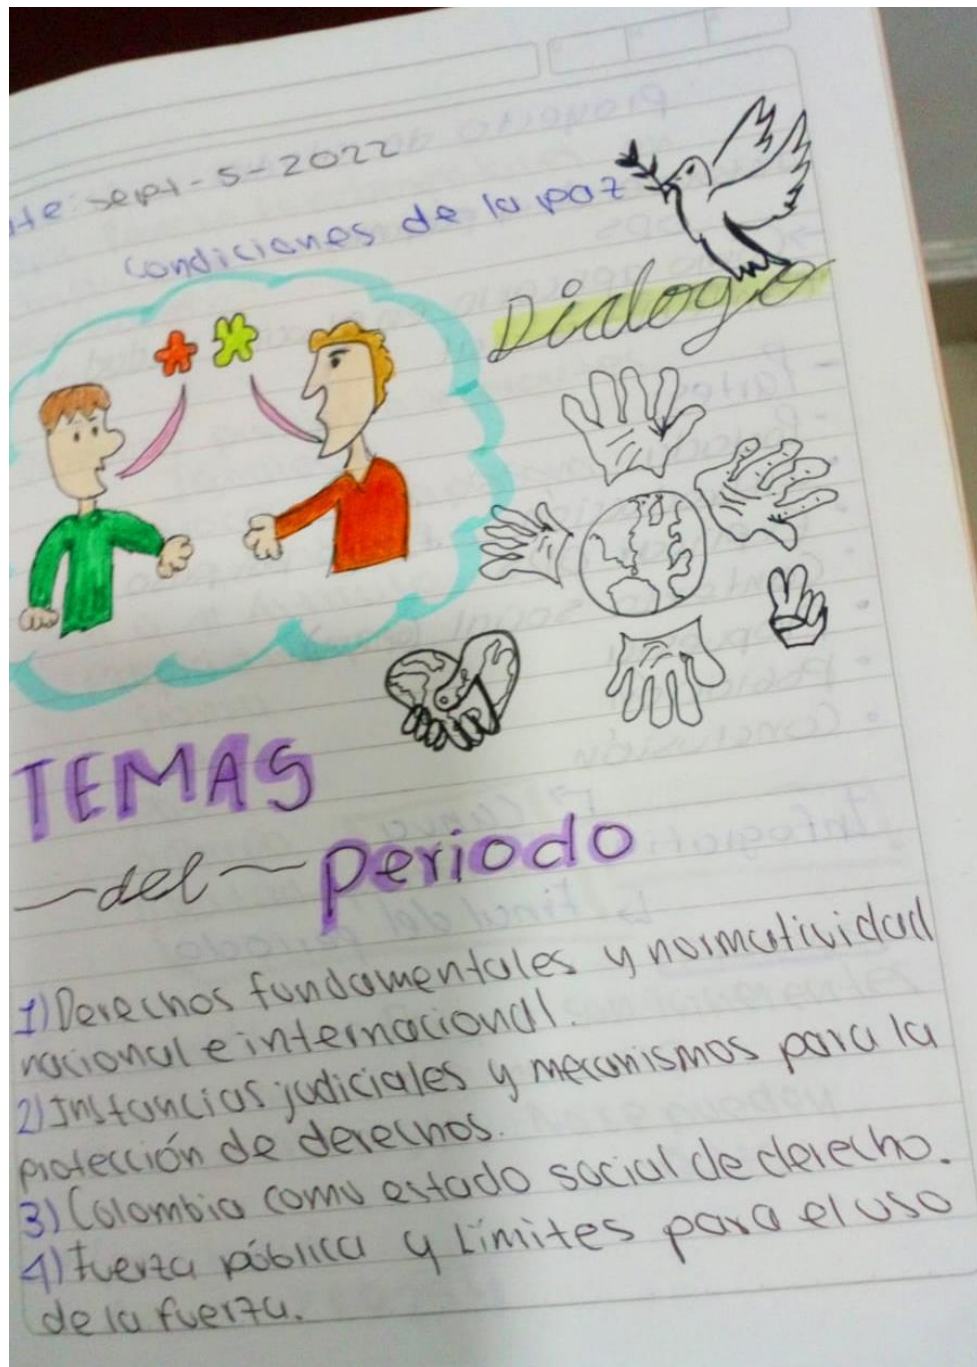 sept-5-2022
condiciones de la paz
Dialogo
TEMAS
del periodo
1) Derechos fundamentales y normatividad
nacional e internacional.
2) Instancias judiciales y mecanismos para la
protección de derechos.
3) Colombia como estado social de derecho.
4) Fuerza pública y Límites para el uso
de la fuerza.